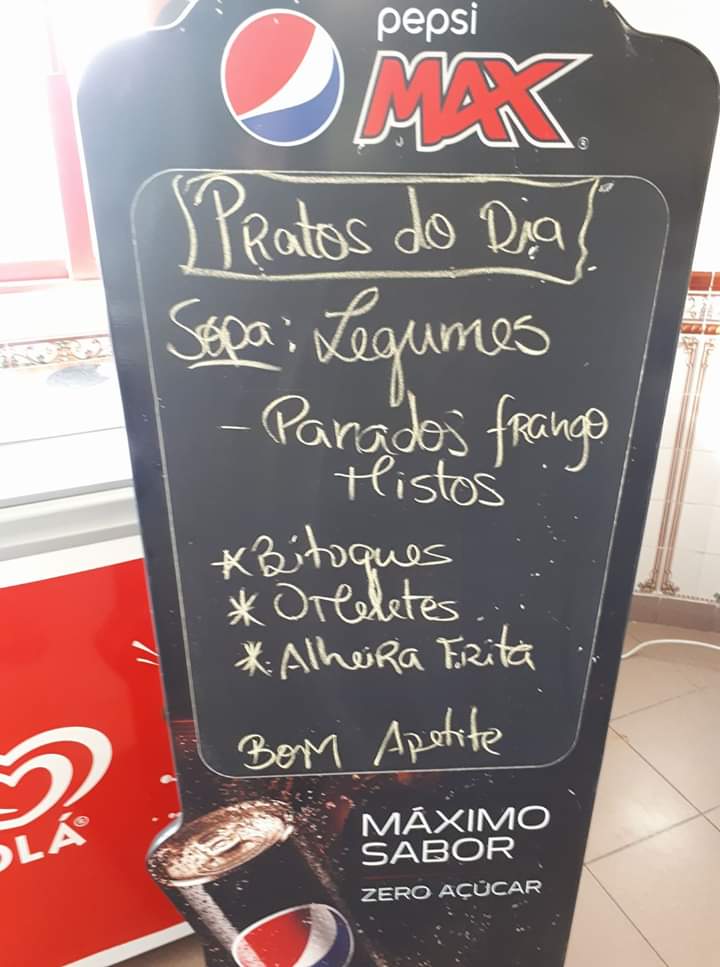 pepsi
MAX®
Pratos do Dia
Sopa: Legumes
- Panados frango
Mistos
* Bitoques
* Omeletes.
* Alheira Frita
Bom Apetite
MÁXIMO
SABOR
ZERO AÇÚCAR
OLÁ®